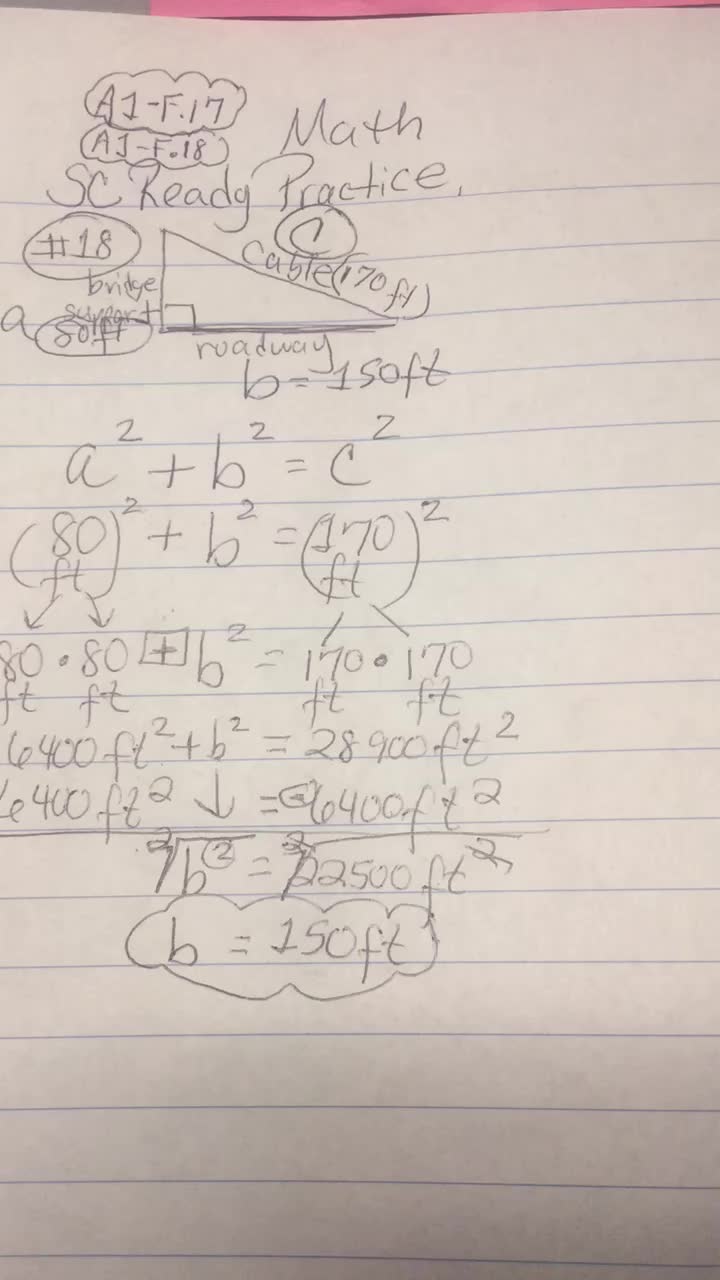 A1-F.17
A1-F.18
Math
SC Ready Practice.
#18
C
cable (170 ft)
bridge
support
a
80ft
roadway
b = 150ft
a² + b² = c²
(80 ft)² + b² = (170 ft)²
80 • 80 + b² = 170 • 170
ft ft ft ft
6400ft² + b² = 28900ft²
6400ft² ↓ = -6400ft²
²√b² = ²√22500ft²
b = 150ft